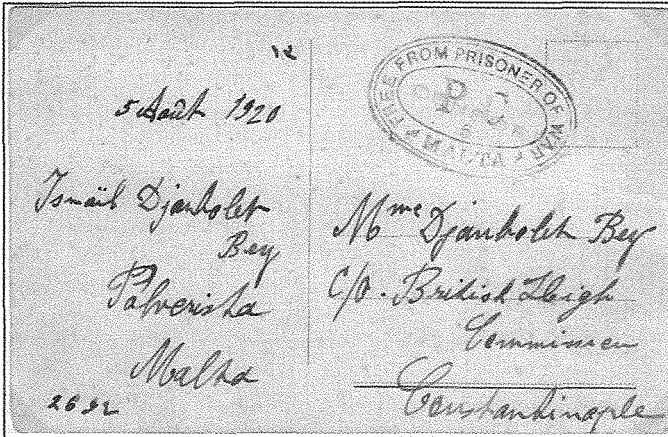 12
5 Août 1920
Ismaïl Djanbolet
Bey
Polverista
Malta
2692
FREE FROM PRISONER OF WAR
MALTA
Mme Djanbolet Bey
c/o. British High
Commission
Constantinople